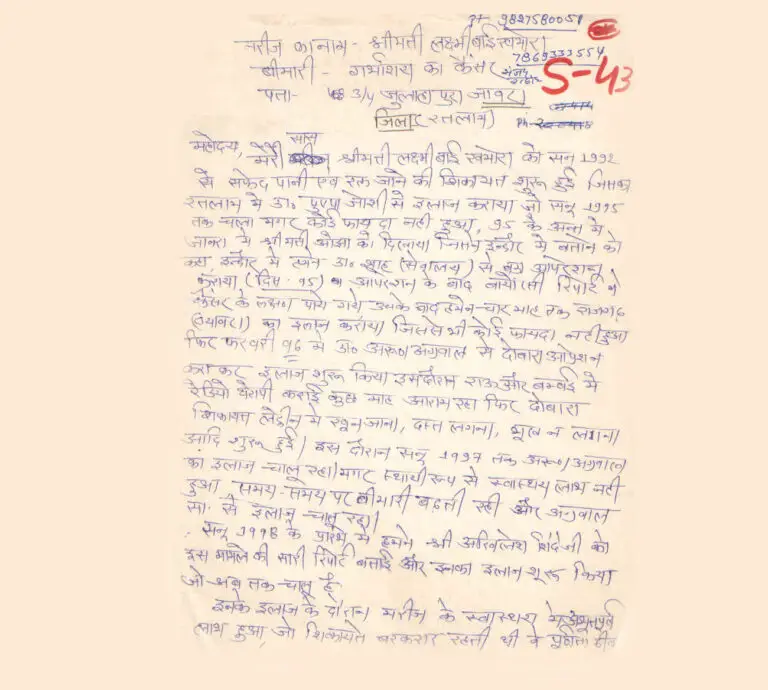 Pt 9827580051
मरीज का नाम - श्रीमती लक्ष्मीबाई खमोरा
7869333554
बीमारी - गर्भाशय का कैंसर
S-43
पता- 3/4 जुलाहापुरा जावरा
जिला रतलाम
महोदय,
सास
मेरी श्रीमती लक्ष्मीबाई खमोरा को सन 1992
से सफेद पानी एवं रक्त जाने की शिकायत शुरू हुई जिसका
रतलाम में डॉ. पुष्पा जोशी से इलाज कराया जो सन् 1995
तक चला मगर कोई फायदा नही हुआ, 95 के अन्त में
जावरा में श्रीमती ओझा को दिखाया जिसने इन्दौर में बताने को
कहा, इन्दौर में डॉ. शाह (सेवालय) से आपरेशन
कराया (दिस. 95) आपरेशन के बाद बायोप्सी रिपोर्ट में
कैंसर के लक्षण पाये गये उसके बाद हमने चार माह तक राजगढ़
(ब्यावरा) का इलाज कराया जिससे भी कोई फायदा नही हुआ
फिर फरवरी 96 में डॉ. अरूण अग्रवाल से दोबारा आप्रेशन
करा कर इलाज शुरू किया उस दौरान राऊ और बम्बई में
रेडियो थेरापी कराई कुछ माह आराम रहा फिर दोबारा
शिकायत लेट्रीन में खून जाना, दस्त लगना, भूख न लगना
आदि शुरू हुई। इस दौरान सन् 1997 तक अरूण अग्रवाल
का इलाज चालू रहा। मगर स्थायी रूप से स्वास्थय लाभ नही
हुआ, समय-समय पर बीमारी बढती रही और अग्रवाल
सा. से इलाज चालू रहा।
सन् 1998 के प्रारंभ में हमने श्री अखिलेश शिंदेजी को
इस मामले की सारी रिपोर्ट बताई और इनका इलाज शुरू किया
जो अब तक चालू है
इनके इलाज के दौरान मरीज के स्वास्थय में अभूतपूर्व
लाभ हुआ, जो शिकायते बरकरार रहती थी वे पूर्णतः ठीक